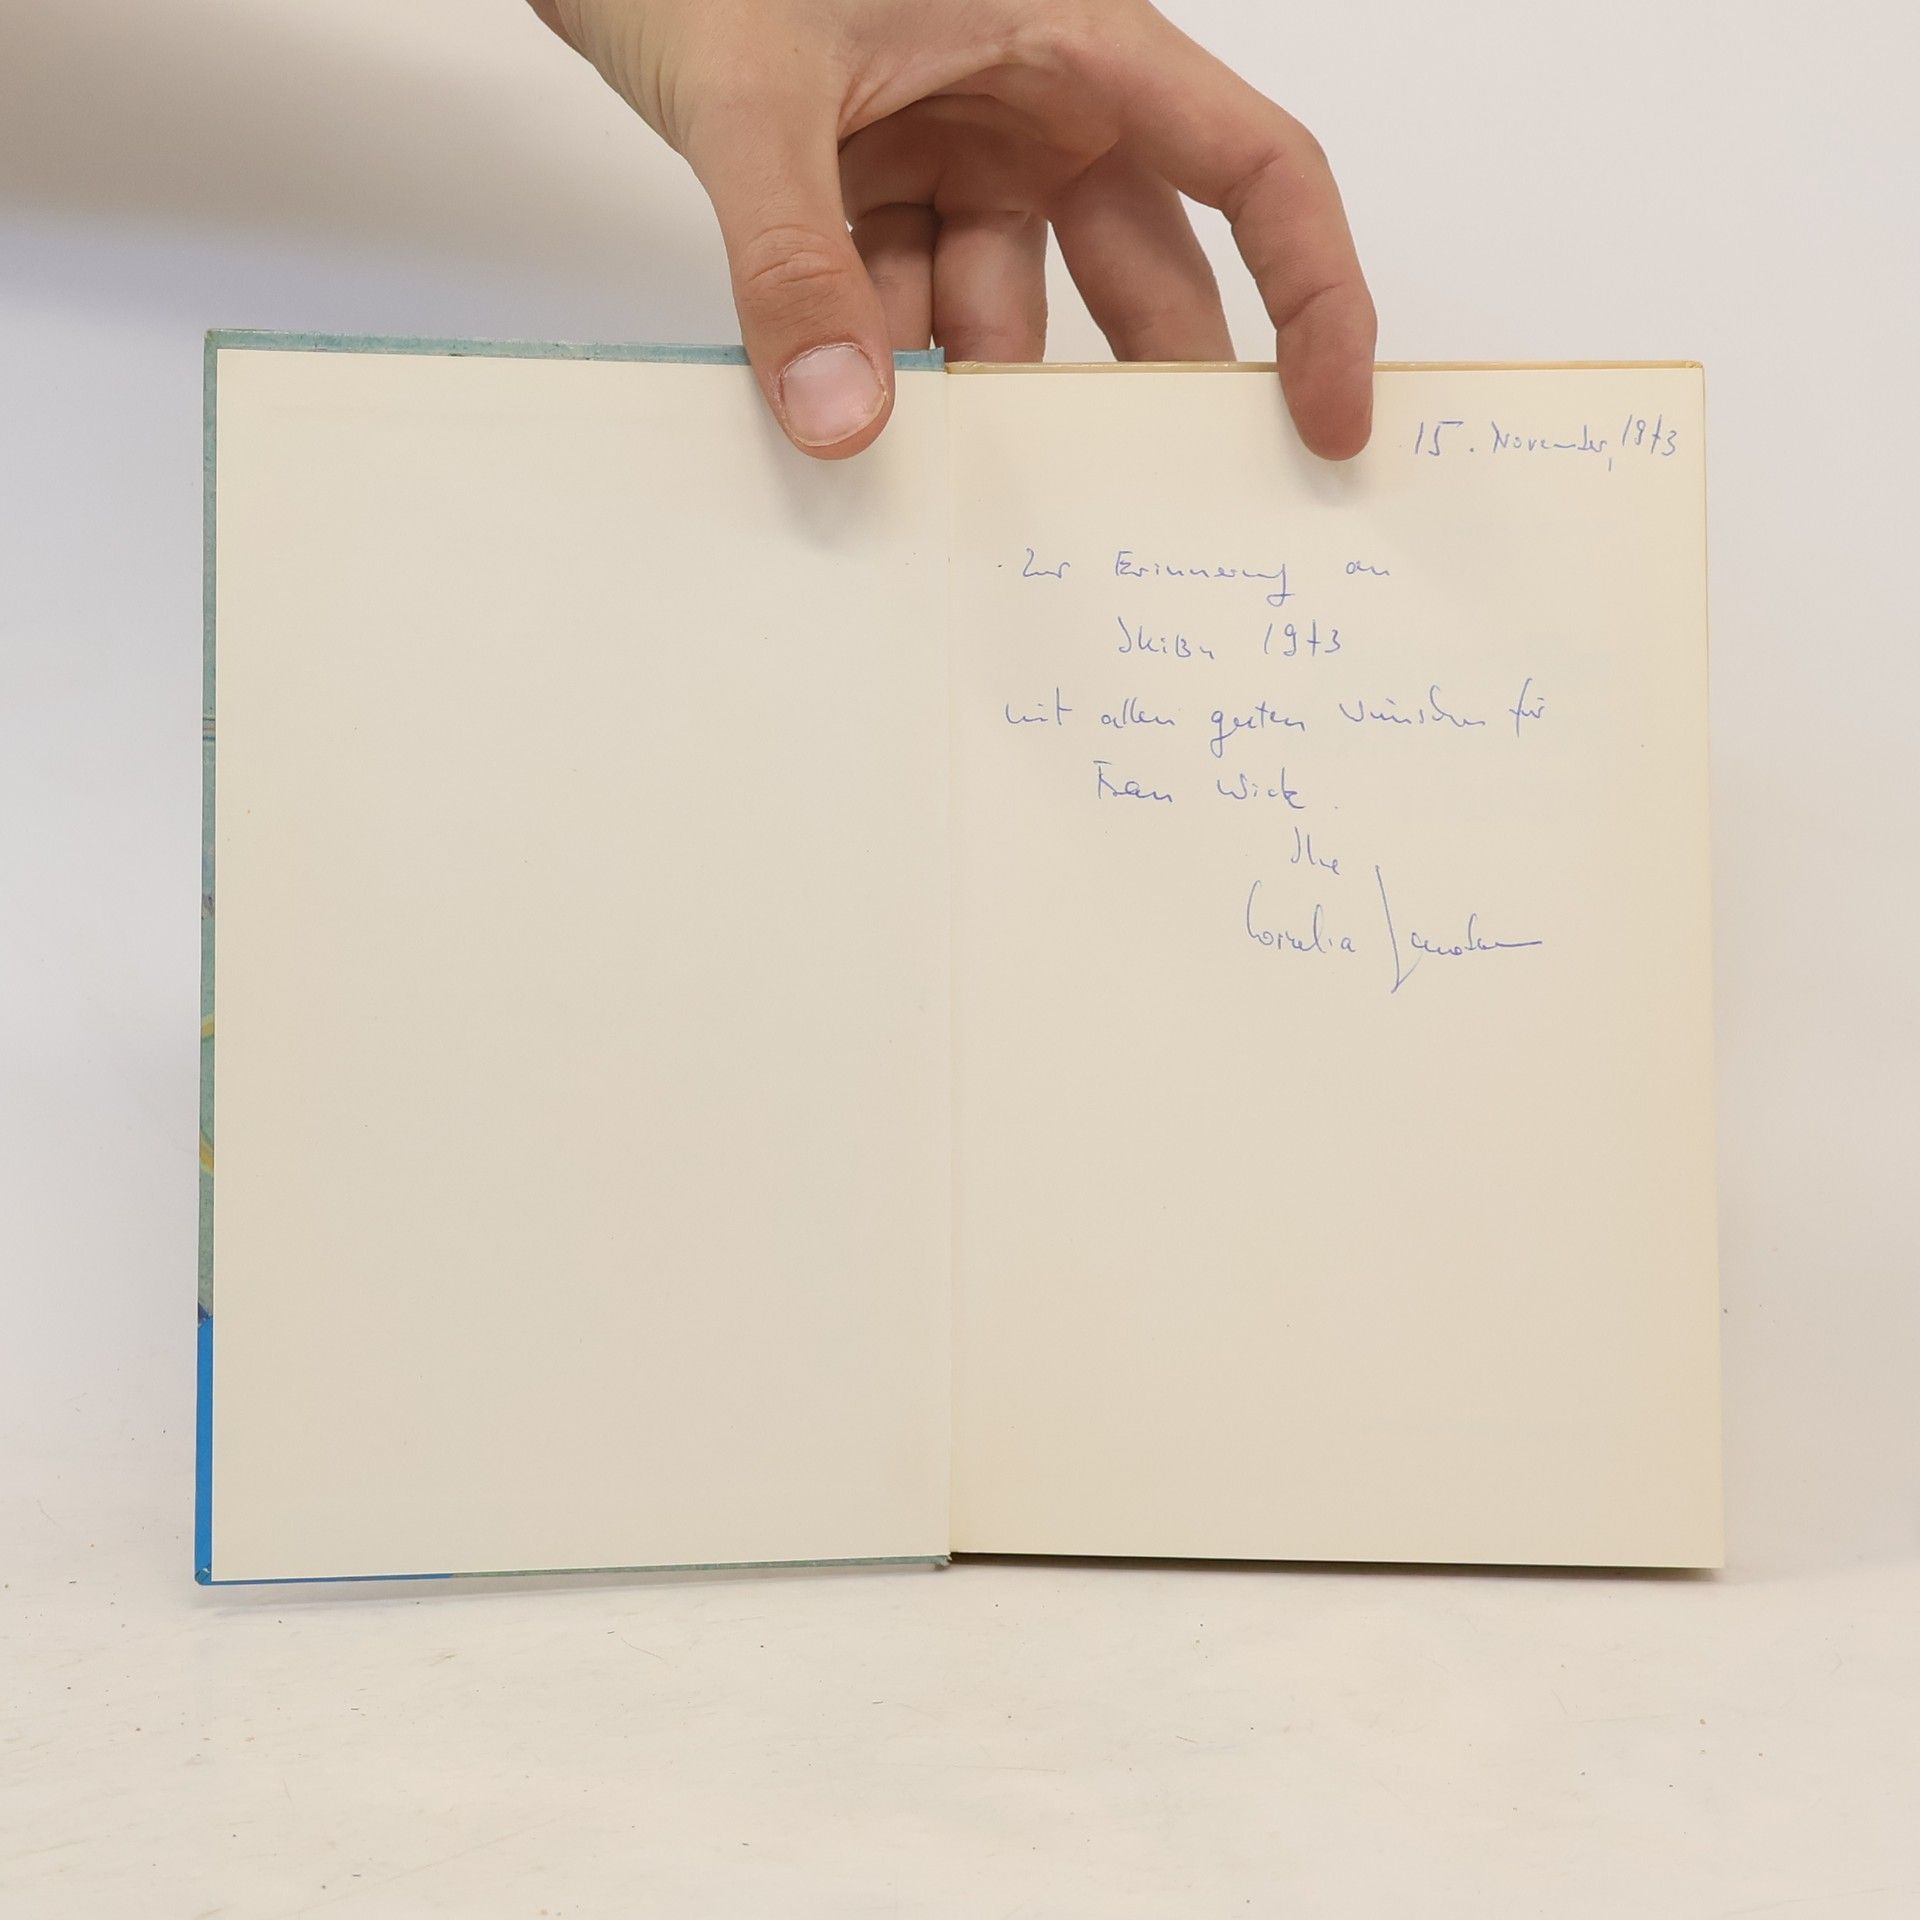 15. November, 1973
Zur Erinnerung an
IKiBu 1973
mit allen guten Wünschen für
Frau Wick.
Ihre
Cornelia